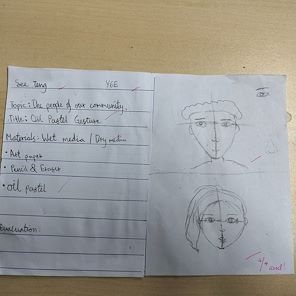 See Tung YEE
Topic: The people of our community.
Title: Oil Pastel Gesture
Materials: Wet media / Dry media
• Art paper
• Pencil & Eraser
• oil pastel
Evaluation: